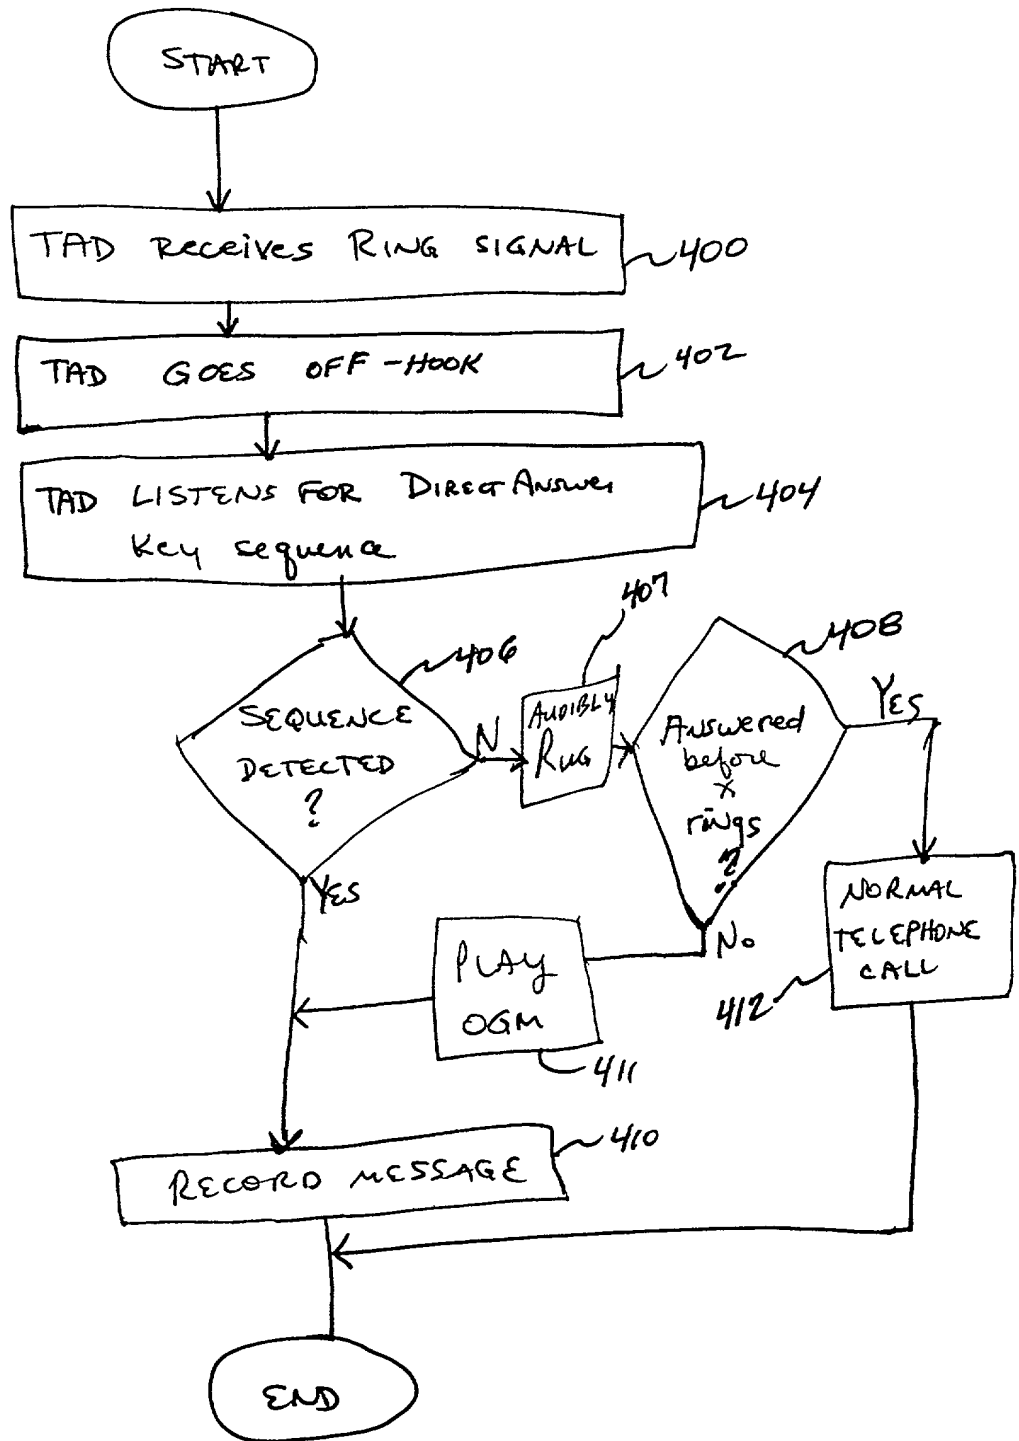 START
TAD Receives RING SIGNAL
400
TAD GOES OFF-HOOK
402
TAD LISTENS FOR Direct Answer
Key sequence
404
SEQUENCE
DETECTED
?
406
N
YES
AUDIBLY
RING
407
Answered
before
X
rings
?
408
YES
No
NORMAL
TELEPHONE
CALL
412
PLAY
OGM
411
RECORD MESSAGE
410
END